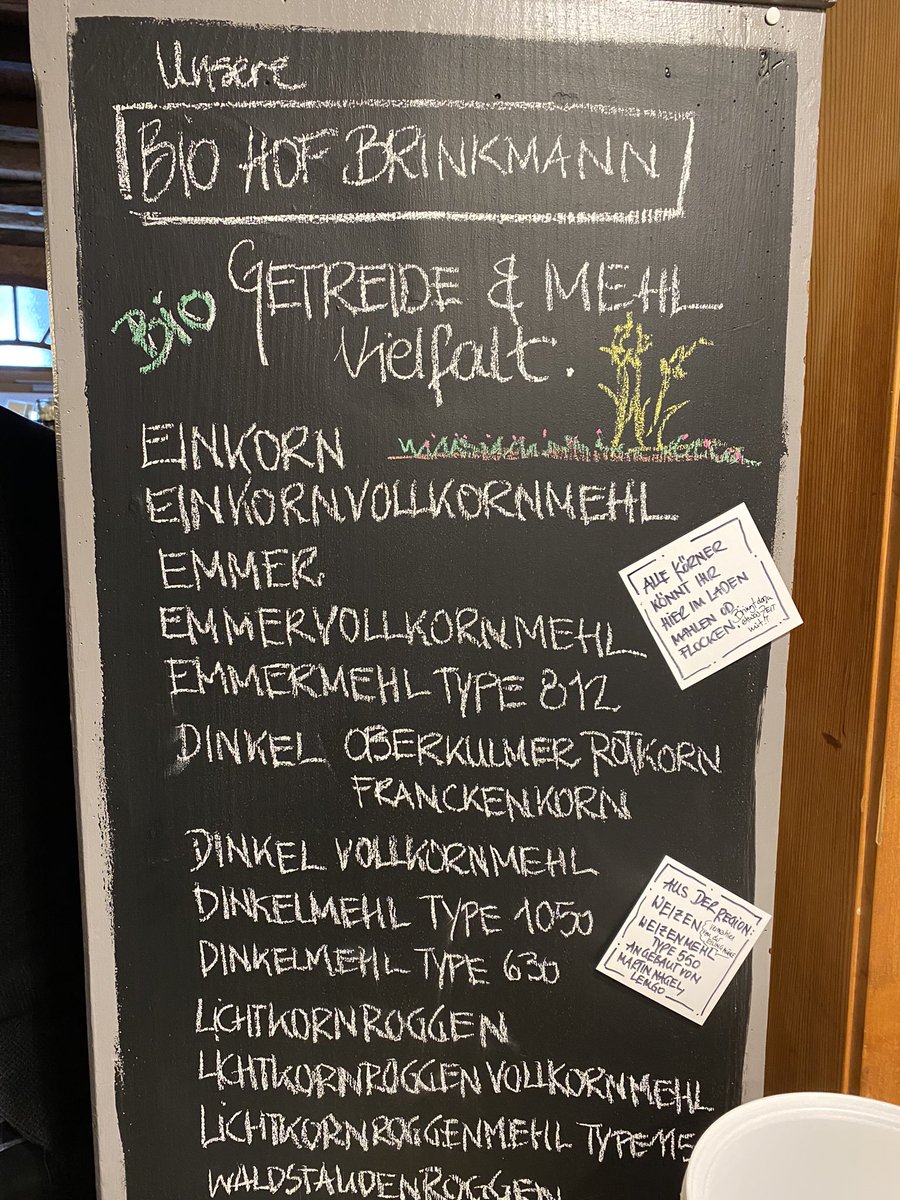 Unsere
BIO HOF BRINKMANN
BIO GETREIDE & MEHL
Vielfalt.
EINKORN
EINKORNVOLLKORNMEHL
EMMER
EMMERVOLLKORNMEHL
EMMERMEHL TYPE 812
DINKEL OBERKULMER ROTKORN
FRANCKENKORN
DINKEL VOLLKORNMEHL
DINKELMEHL TYPE 1050
DINKELMEHL TYPE 630
LICHTKORNROGGEN
LICHTKORNROGGENVOLLKORNMEHL
LICHTKORNROGGENMEHL TYPE 115
WALDSTAUDENROGGEN
ALLE KÖRNER
KÖNNT IHR
HIER IM LADEN
MAHLEN OD.
FLOCKEN.
Bringt dazu
etwas ZEIT
mit!!
AUS DER REGION:
WEIZEN
WEIZENMEHL
TYPE 550
ANGEBAUT VON
MARTIN NAGEL,
LEMGO